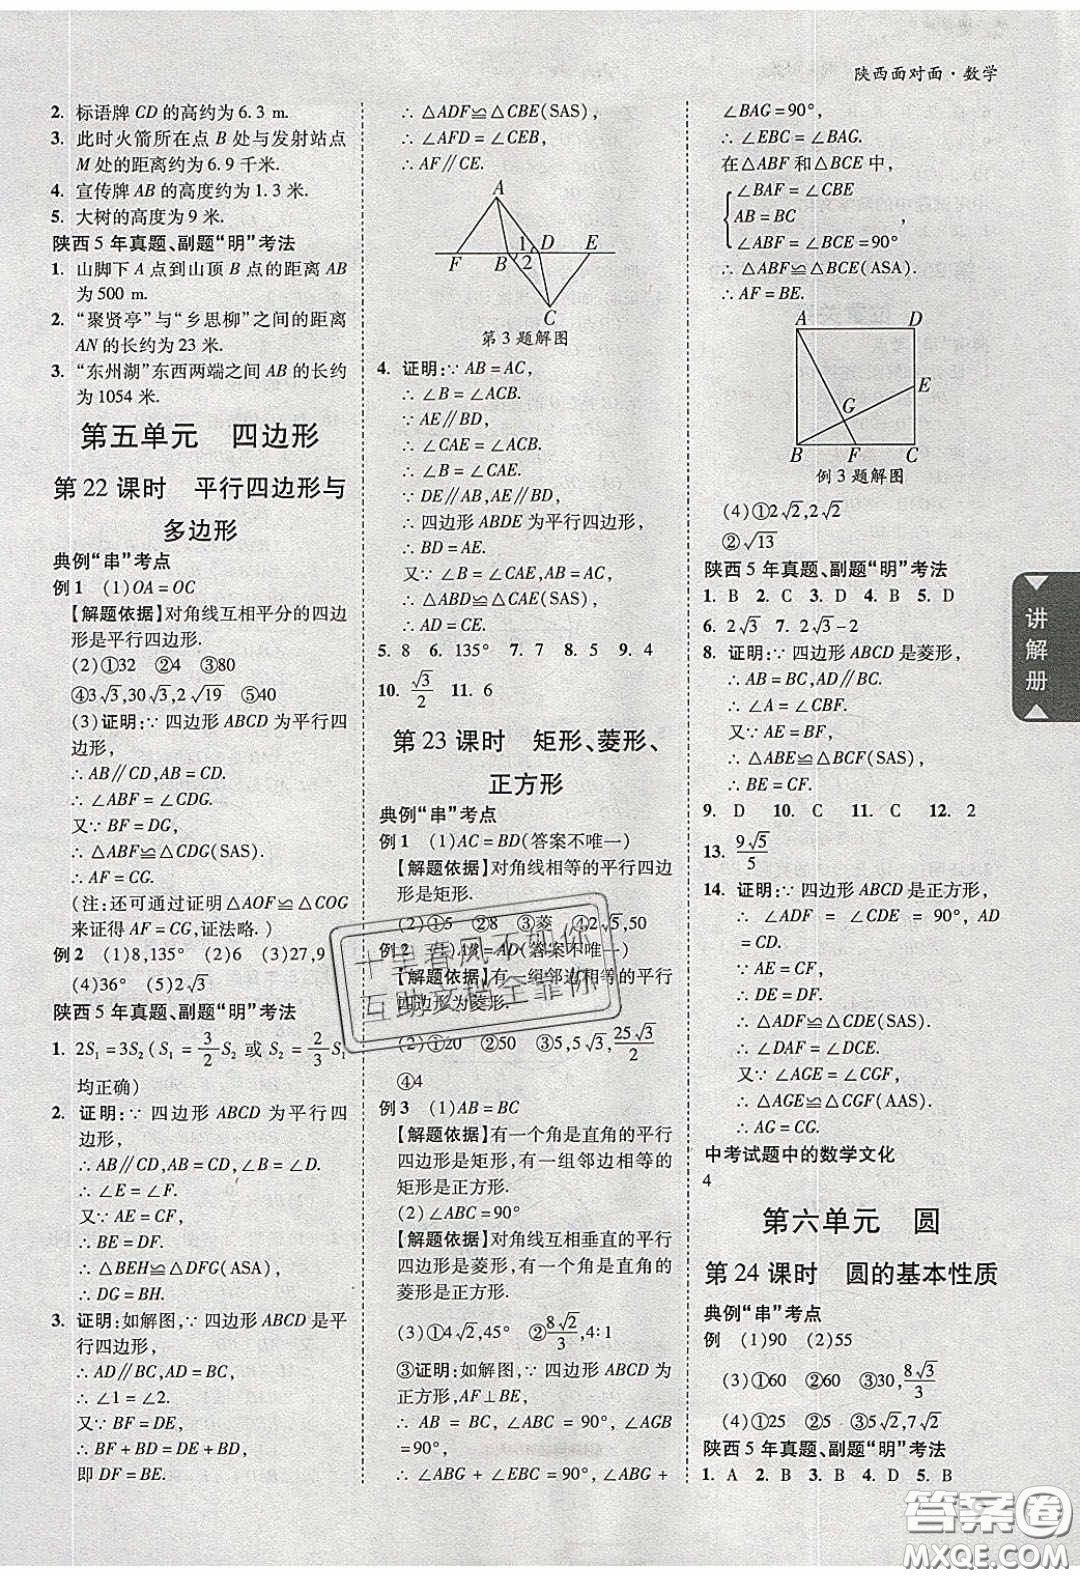 陕西面对面·数学
2. 标语牌 CD 的高约为 6.3 m.
3. 此时火箭所在点 B 处与发射站点
M 处的距离约为 6.9 千米.
4. 宣传牌 AB 的高度约为 1.3 米.
5. 大树的高度为 9 米.
陕西 5 年真题、副题“明”考法
1. 山脚下 A 点到山顶 B 点的距离 AB
为 500 m.
2. “聚贤亭”与“乡思柳”之间的距离
AN 的长约为 23 米.
3. “东州湖”东西两端之间 AB 的长约
为 1054 米.
第五单元 四边形
第 22 课时 平行四边形与
多边形
典例“串”考点
例 1 (1)OA=OC
【解题依据】对角线互相平分的四边
形是平行四边形.
(2)①32 ②4 ③80
④3√3,30√3,2√19 ⑤40
(3)证明:∵四边形 ABCD 为平行四
边形,
∴AB∥CD,AB=CD.
∴∠ABF=∠CDG.
又∵BF=DG,
∴△ABF≌△CDG(SAS).
∴AF=CG.
(注:还可通过证明△AOF≌△COG
来证得 AF=CG,证法略.)
例 2 (1)8,135° (2)6 (3)27,9
(4)36° (5)2√3
陕西 5 年真题、副题“明”考法
1. 2S₁=3S₂(S₁=3/2 S₂ 或 S₂=2/3 S₁
均正确)
2. 证明:∵四边形 ABCD 为平行四
边形,
∴AB∥CD,AB=CD.
∴∠E=∠F.
又∵AE=CF,
∴BE=DF.
∴△BEH≌△DFG(ASA).
∴DG=BH.
3. 证明:如解图,∵四边形 ABCD 是平
行四边形,
∴AD∥BC,AD=BC.
∴∠1=∠2.
又∵BF=DE,
∴BF+BD=DE+BD.
即 DF=BE.
∴△ADF≌△CBE(SAS),
∴∠AFD=∠CEB,
∴AF∥CE.
A
1
D
E
F
B
2
C
第 3 题解图
4. 证明:∵AB=AC,
∴∠B=∠ACB.
∵AE∥BD,
∴∠CAE=∠ACB.
∴∠B=∠CAE.
∵DE∥AB,AE∥BD,
∴四边形 ABDE 为平行四边形,
∴BD=AE.
又∵∠B=∠CAE,AB=AC,
∴△ABD≌△CAE(SAS),
∴AD=CE.
5. 8 6. 135° 7. 7 8. 5 9. 4
10. √3/2 11. 6
第 23 课时 矩形、菱形、
正方形
典例“串”考点
例 1 (1)AC=BD(答案不唯一)
【解题依据】对角线相等的平行四边
形是矩形.
(2)①5 ②8 ③菱 ④2√5,50
例 2 (1)AB=AD(答案不唯一)
【解题依据】有一组邻边相等的平行
四边形为菱形.
(2)①20 ②50 ③5,5√3,25√3/2
④4
例 3 (1)AB=BC
【解题依据】有一个角是直角的平行
四边形是矩形,有一组邻边相等的
矩形是正方形.
(2)∠ABC=90°
【解题依据】对角线互相垂直的平行
四边形是菱形,有一个角是直角的
菱形是正方形.
(3)①4√2,45° ②8√2/3,4:1
③证明:如解图,∵四边形 ABCD 为
正方形,AF⊥BE,
∴AB=BC,∠ABC=90°,∠AGB
=90°,
∴∠ABG+∠EBC=90°,∠ABG+
∠BAG=90°,
∴∠EBC=∠BAG.
在△ABF 和△BCE 中,
∠BAF=∠CBE
AB=BC ,
∠ABF=∠BCE=90°
∴△ABF≌△BCE(ASA).
∴AF=BE.
A
D
E
G
B
F
C
例 3 题解图
(4)①2√2,2√2
②√13
陕西 5 年真题、副题“明”考法
1. B 2. C 3. D 4. B 5. D
6. 2√3 7. 2√3-2
8. 证明:∵四边形 ABCD 是菱形,
∴AB=BC,AD∥BC.
∴∠A=∠CBF.
又∵AE=BF,
∴△ABE≌△BCF(SAS).
∴BE=CF.
9. D 10. C 11. C 12. 2
13. 9√5/5
14. 证明:∵四边形 ABCD 是正方形,
∴∠ADF=∠CDE=90°,AD
=CD.
∵AE=CF,
∴DE=DF.
∴△ADF≌△CDE(SAS).
∴∠DAF=∠DCE.
又∵∠AGE=∠CGF,
∴△AGE≌△CGF(AAS).
∴AG=CG.
中考试题中的数学文化
4
第六单元 圆
第 24 课时 圆的基本性质
典例“串”考点
例 (1)90 (2)55
(3)①60 ②60 ③30,8√3/3
(4)①25 ②5√2,7√2
陕西 5 年真题、副题“明”考法
1. A 2. B 3. B 4. D 5. B
讲解册
十里春风不如你
互助文档全靠你
答案卷
MXQE.COM